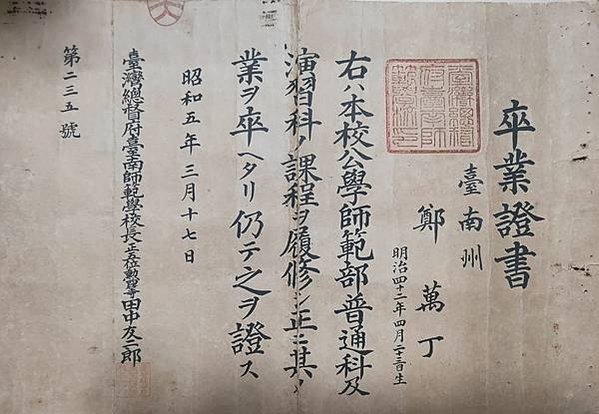 卒業證書
臺南州
鄭萬丁
明治四十二年四月二十三日生
右ハ本校公學師範部普通科及
演習科ノ課程ヲ履修シ正ニ其ノ
業ヲ卒ヘタリ仍テ之ヲ證ス
昭和五年三月十七日
臺灣總督府臺南師範學校長正五位勳四等田中友二郎
第二三五號